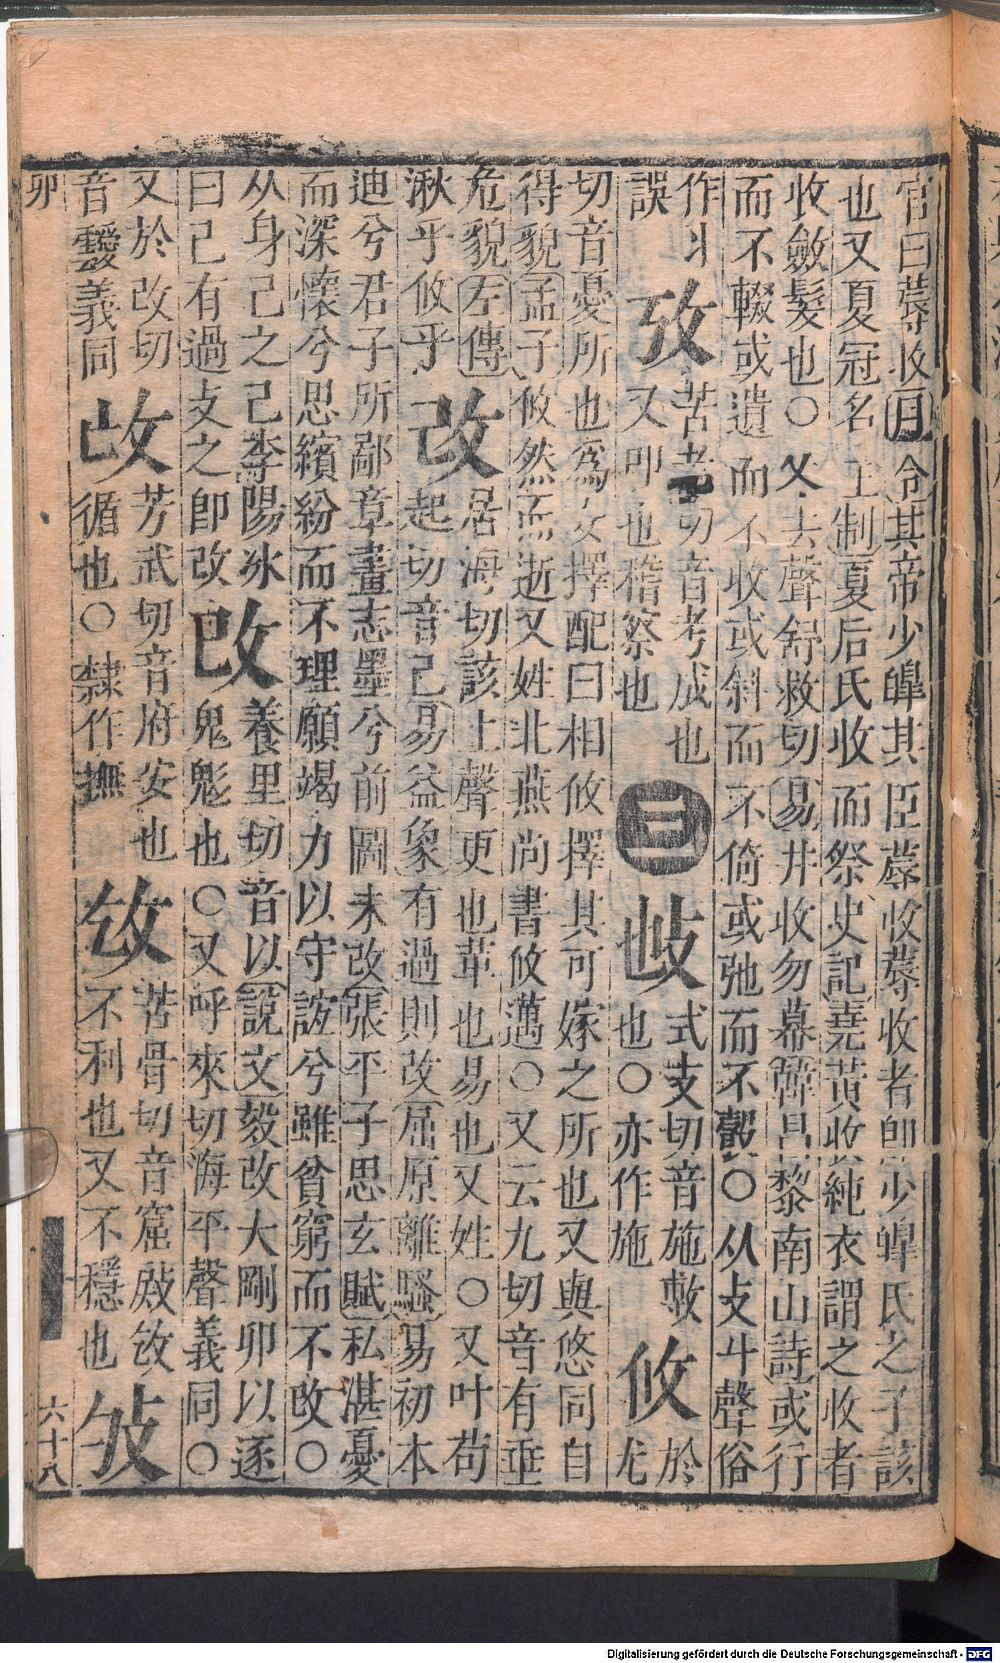 官曰蓐收月令其帝少皥其臣蓐收蓐收者卽少皥氏之子該
也又夏冠名王制夏后氏收而祭史記堯黃收純衣謂之收者
收斂髮也○又去聲舒救切易井收勿幕韓昌黎南山詩或行
而不輟或遺而不收或斜而不倚或弛而不彀○从攴丩聲俗
作斗
誤
攷
苦考切音考成也
又叩也稽察也
三
攱
式支切音施敷
也○亦作施
攸
於
尤
切音憂所也爲女擇配曰相攸擇其可嫁之所也又與悠同自
得貌孟子攸然而逝又姓北燕尚書攸邁○又云九切音有垂
危貌左傳
湫乎攸乎
改
居海切該上聲更也革也易也又姓○又叶苟
起切音己易益象有過則改屈原離騷易初本
迪兮君子所鄙章畫志墨兮前圖未改張平子思玄賦私湛憂
而深懷兮思繽紛而不理願竭力以守誼兮雖貧窮而不改○
从身己之己李陽冰
曰己有過攴之卽改
攺
養里切音以說文毅改大剛卯以逐
鬼鬽也○又呼來切海平聲義同○
又於改切
音靉義同
芳武切音府安也
循也○隸作撫
苦骨切音窟
不利也又不穩也
卯
六十八
Digitalisierung gefördert durch die Deutsche Forschungsgemeinschaft - DFG